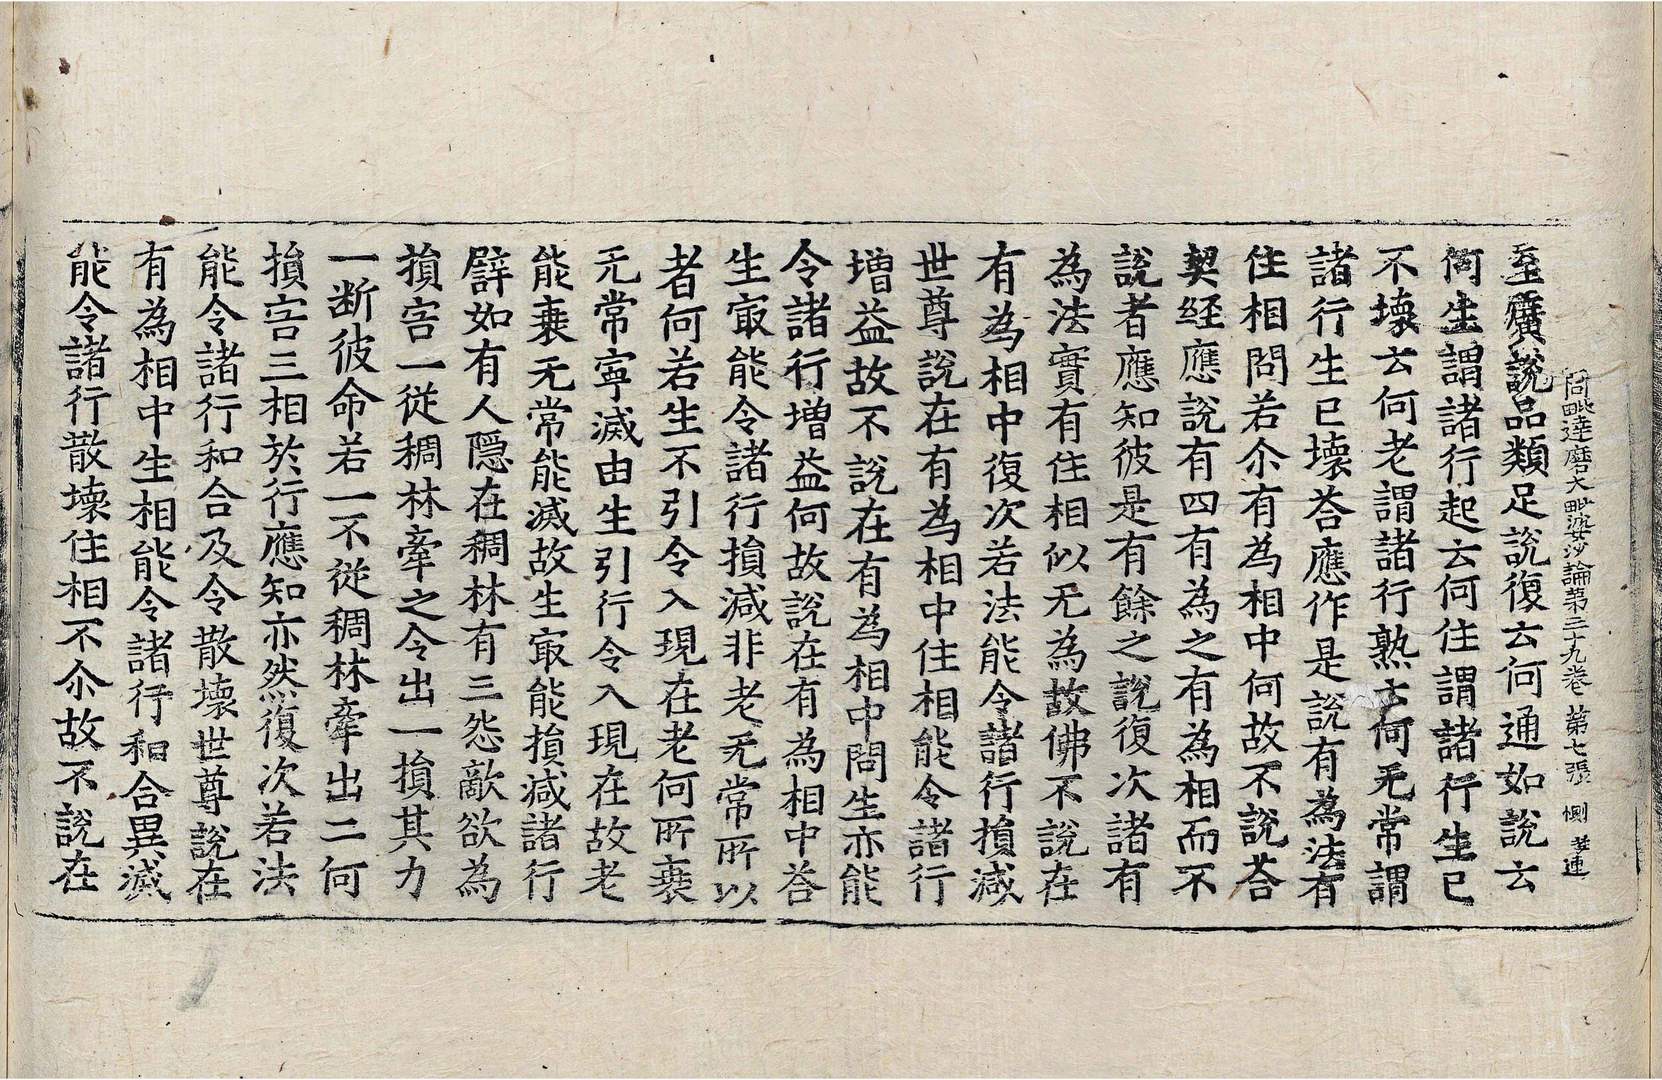 阿毗達磨大毗婆沙論第三十九卷 第七張 惻
至廣說品類足說復云何通如說云
何生謂諸行起云何住謂諸行生已
不壞云何老謂諸行熟云何无常謂
諸行生已壞荅應作是說有為法有
住相問若尒有為相中何故不說荅
契經應說有四有為之有為相而不
說者應知彼是有餘之說復次諸有
為法實有住相似无為故佛不說在
有為相中復次若法能令諸行損減
世尊說在有為相中住相能令諸行
增益故不說在有為相中問生亦能
令諸行增益何故說在有為相中荅
生㝡能令諸行損減非老无常所以
者何若生不引令入現在老何所衰
无常寧滅由生引行令入現在故老
能衰无常能滅故生㝡能損減諸行
譬如有人隱在稠林有三怨敵欲為
損害一從稠林牽之令出一損其力
一斷彼命若一不從稠林牽出二何
損害三相於行應知亦然復次若法
能令諸行和合及令散壞世尊說在
有為相中生相能令諸行和合異滅
能令諸行散壞住相不尒故不說在